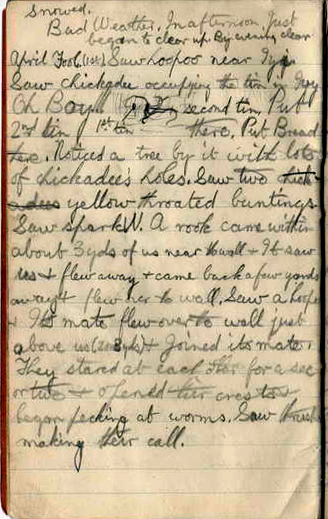 Snowed.
Bad Weather. In afternoon Just
began to clear up. By evening clear
April Fool (1st) Saw hoopoo near Gym
Saw chickadee occupying the tin in
Oh Boy!! second tin Put
2nd tin 1st tin there. Put Bread
here. Noticed a tree by it with lots
of chickadee's holes. Saw two
yellow throated buntings
Saw spark N. A rook came within
about 3 yds of us near to wall & It saw
us & flew away & came back a few yards
away & flew to wall. Saw a hoopo
& Its mate flew over to wall just
above us (2 or 3 yds) & Joined its mate.
They stared at each other for a sec
or two & opened their crests &
began pecking at worms. Saw
making their call.